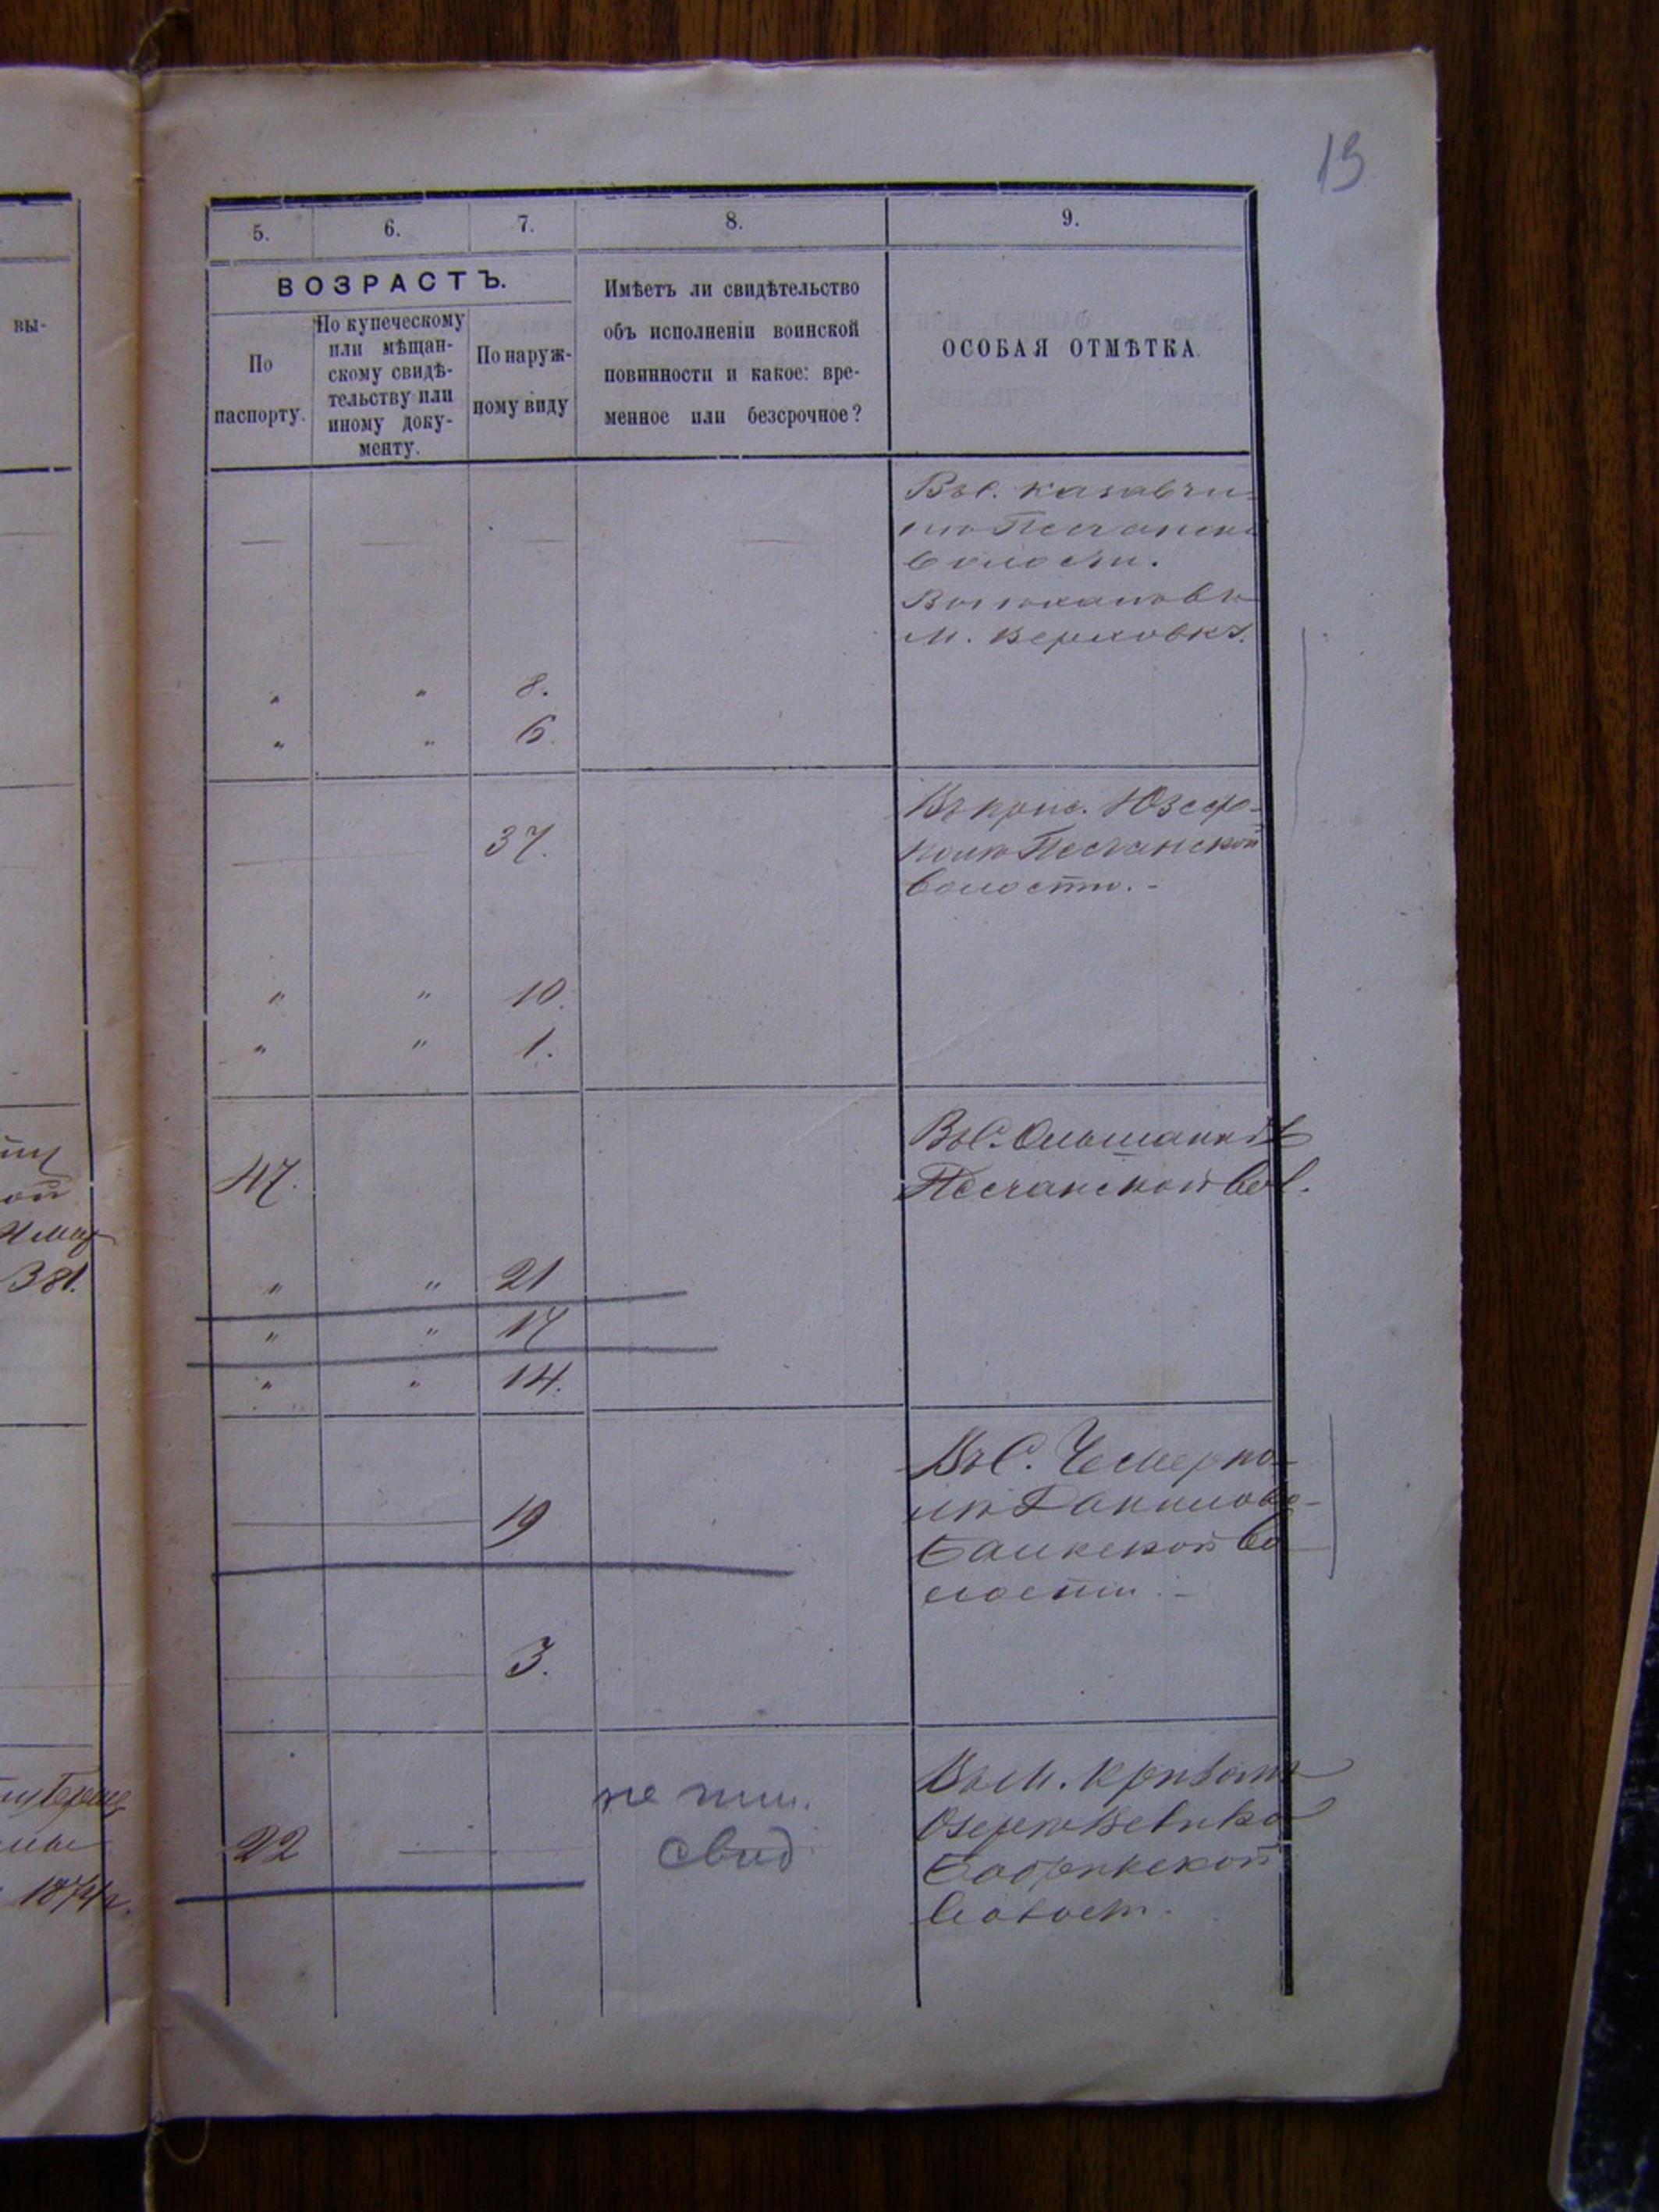 13
5. 6. 7. 8. 9.
ВОЗРАСТЪ.
По
паспорту.
По купеческому
или мѣщан-
скому свидѣ-
тельству или
иному доку-
менту.
По наруж-
ному виду
Имѣетъ ли свидѣтельство
объ исполненіи воинской
повинности и какое: вре-
менное или безсрочное?
ОСОБАЯ ОТМѢТКА.
вы-
Въ с. Казавчи-
нѣ Песчанской
волости.
м. Верховкѣ.
„ „ 8.
„ „ 6.
37.
Въ прис. Юзеф-
полѣ Песчанской
волости. -
„ „ 10.
„ „ 1.
47.
Въ С. Ольшанкѣ
Песчанской вол.
381.
„ „ 21
„ „ 17
„ „ 14.
19
Въ С. Чемерпо-
лѣ Данилово-
Балкской во
лости. -
3.
22
не им.
свид
Въ м. Кривомъ
Озерѣ
волост.
1874 г.